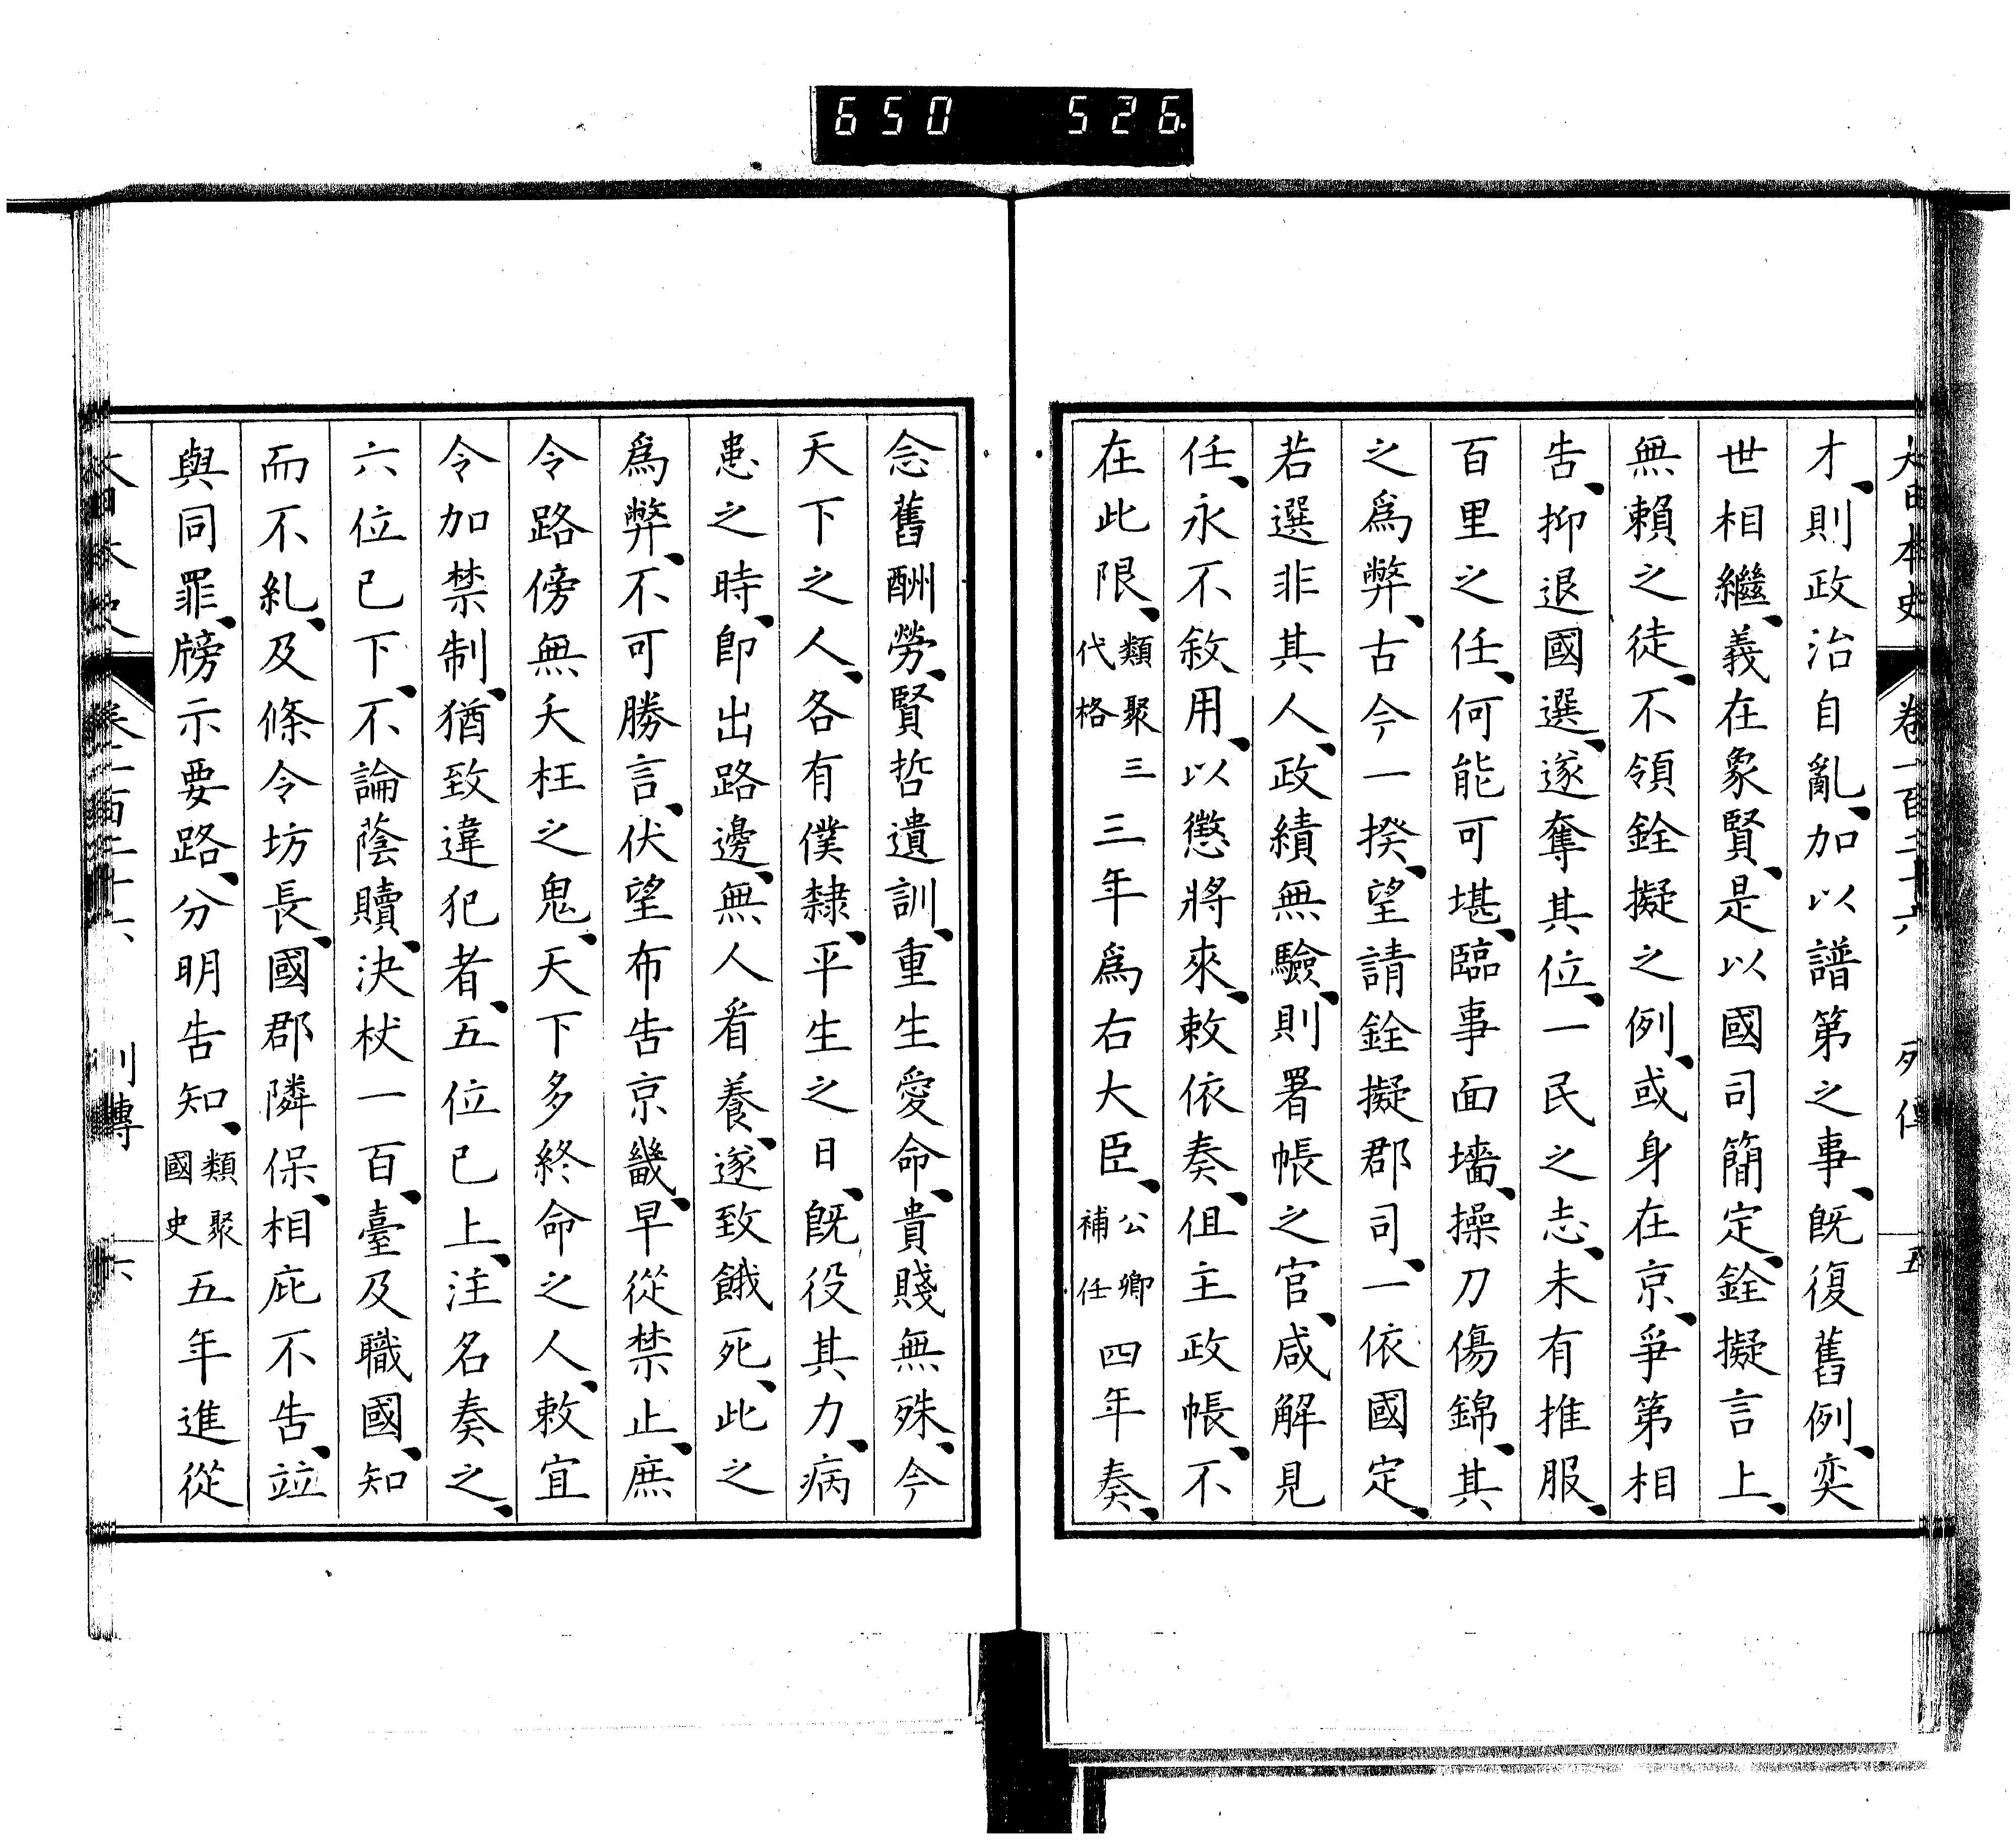 650 526
才、則政治自亂、加以譜第之事、既復舊例、奕
世相繼、義在象賢、是以國司簡定、銓擬言上、
無賴之徒、不領銓擬之例、或身在京、爭第相
告、抑退國選、遂奪其位、一民之志、未有推服、
百里之任、何能可堪、臨事面墻、操刀傷錦、其
之爲弊、古今一揆、望請銓擬郡司、一依國定、
若選非其人、政績無驗、則署帳之官、咸解見
任、永不敘用、以懲將來、敕依奏、但主政帳、不
在此限、類聚三代格 三年爲右大臣、公卿補任 四年奏、
念舊酬勞、賢哲遺訓、重生愛命、貴賤無殊、今
天下之人、各有僕隸、平生之日、既役其力、病
患之時、卽出路邊、無人看養、遂致餓死、此之
爲弊、不可勝言、伏望布告京畿、早從禁止、庶
令路傍無夭枉之鬼、天下多終命之人、敕宜
令加禁制、猶致違犯者、五位已上、注名奏之、
六位已下、不論蔭贖、決杖一百、臺及職國、知
而不糺、及條令坊長、國郡隣保、相庇不告、竝
與同罪、牓示要路、分明告知、類聚國史 五年進從